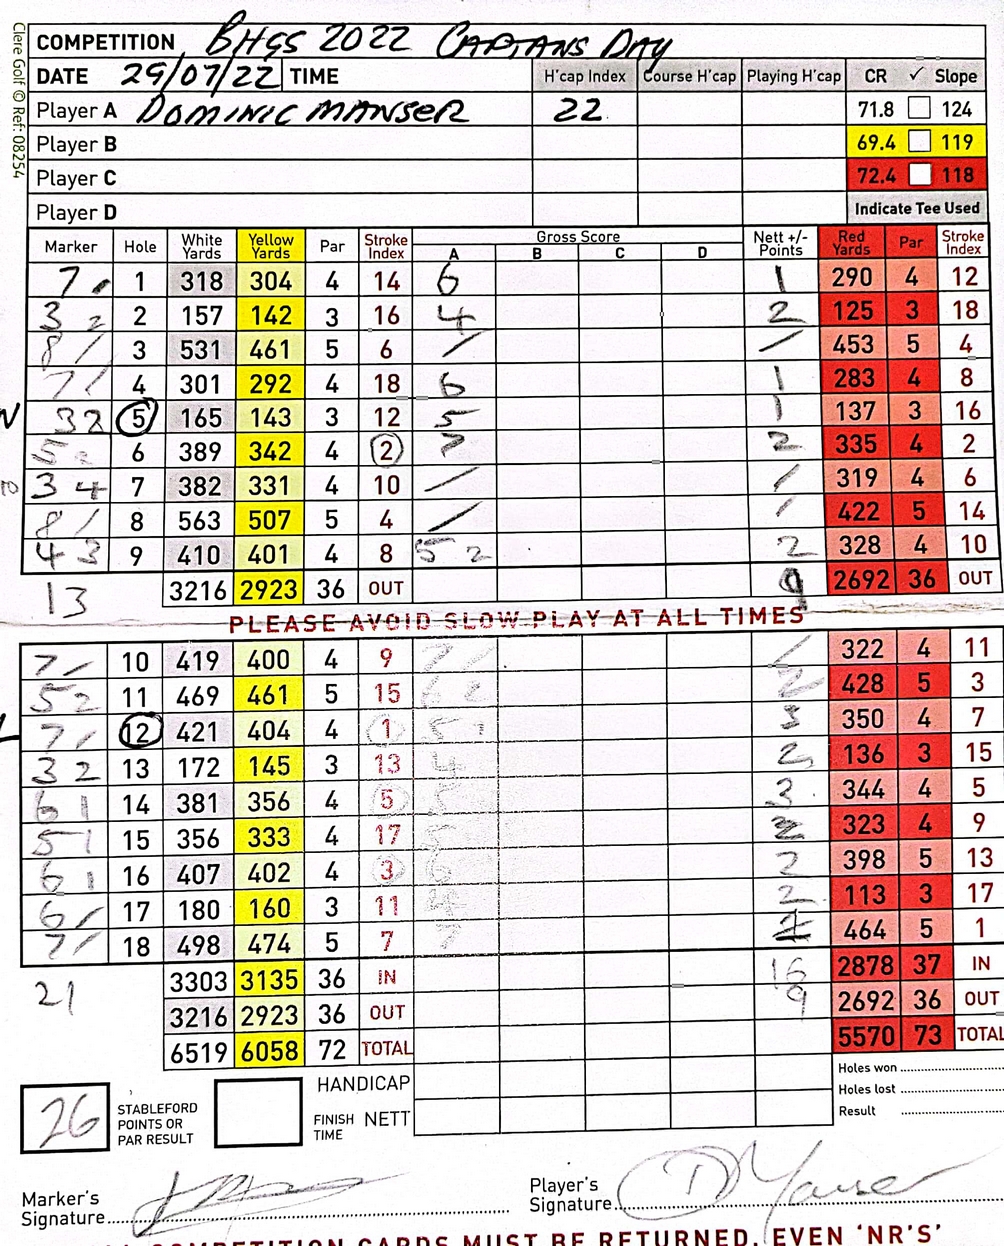 Clere Golf © Ref: 08254
COMPETITION BHGS 2022 CAPTANS DAY
DATE 29/07/22 TIME H'cap Index Course H'cap Playing H'cap CR ✓ Slope
Player A DOMINIC MANSER 22 71.8 124
Player B 69.4 119
Player C 72.4 118
Player D Indicate Tee Used
Marker Hole White Yards Yellow Yards Par Stroke Index Gross Score A B C D Nett +/- Points Red Yards Par Stroke Index
7 / 1 318 304 4 14 6 1 290 4 12
3 2 2 157 142 3 16 4 2 125 3 18
8 / 3 531 461 5 6 / / 453 5 4
7 / 4 301 292 4 18 6 1 283 4 8
3 2 5 165 143 3 12 5 1 137 3 16
5 2 6 389 342 4 2 7 2 335 4 2
3 4 7 382 331 4 10 / / 319 4 6
8 / 8 563 507 5 4 / / 422 5 14
4 3 9 410 401 4 8 5 2 2 328 4 10
13 3216 2923 36 OUT 9 2692 36 OUT
PLEASE AVOID SLOW PLAY AT ALL TIMES
7 / 10 419 400 4 9 7 / / 322 4 11
5 2 11 469 461 5 15 6 2 2 428 5 3
7 / 12 421 404 4 1 5 3 350 4 7
3 2 13 172 145 3 13 4 2 136 3 15
6 1 14 381 356 4 5 5 3 344 4 5
5 1 15 356 333 4 17 5 323 4 9
6 1 16 407 402 4 3 6 2 398 5 13
6 / 17 180 160 3 11 4 2 113 3 17
7 / 18 498 474 5 7 7 464 5 1
21 3303 3135 36 IN 16 2878 37 IN
3216 2923 36 OUT 9 2692 36 OUT
6519 6058 72 TOTAL 5570 73 TOTAL
26 STABLEFORD POINTS OR PAR RESULT HANDICAP
FINISH TIME NETT
Holes won
Holes lost
Result
Marker's Signature
Player's Signature D Manser
COMPETITION CARDS MUST BE RETURNED, EVEN 'NR'S'